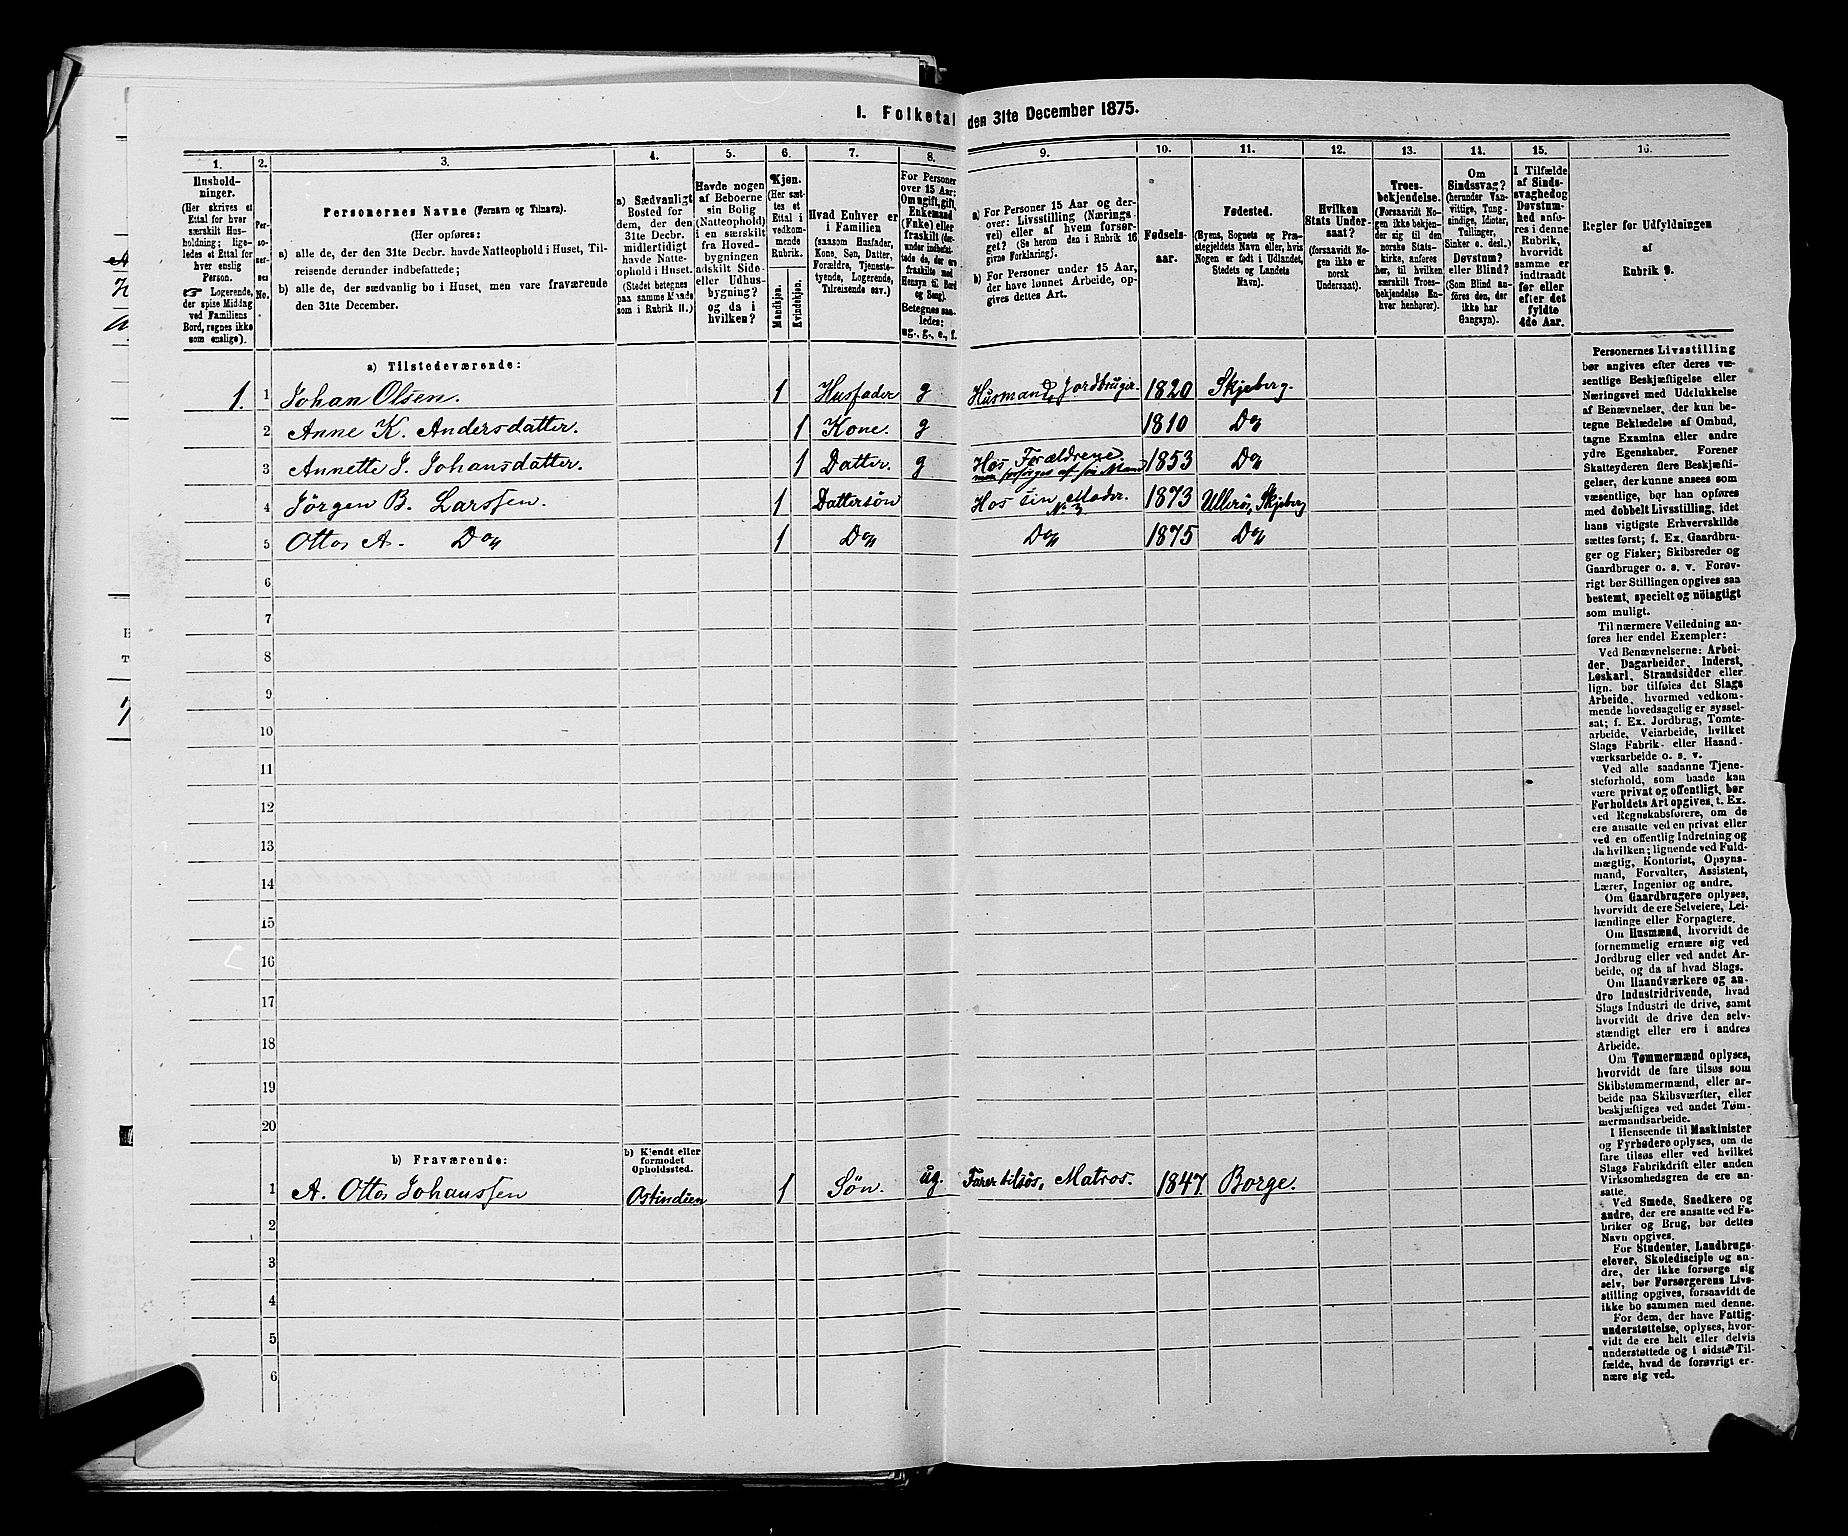 1. Folketal den 31te December 1875.
1. 2. 3. 4. 5. 6. 7. 8. 9. 10. 11. 12. 13. 14. 15. 16.
Hushold-
ninger.
(Her skrives et
Ettal for hver
særskilt Hus-
holdning; lige-
ledes et Ettal for
hver enslig
Person.
☞ Logerende,
der spise Middag
ved Familiens
Bord, regnes ikke
som enslige).
Per-
so-
ner-
nes
No.
Personernes Navne (Fornavn og Tilnavn).
(Her opføres:
a) alle de, der den 31te Decbr. havde Natteophold i Huset, Til-
reisende derunder indbefattede;
b) alle de, der sædvanlig bo i Huset, men vare fraværende
den 31te December.
a) Sædvanligt
Bosted for
dem, der den
31te Decbr.
midlertidigt
havde Natte-
ophold i Huset.
(Stedet betegnes
paa samme Maade
som i Rubrik 11.)
Havde nogen
af Beboerne
sin Bolig
(Natteophold)
i en særskilt
fra Hoved-
bygningen
adskilt Side-
eller Udhus-
bygning?
og da i
hvilken?
Kjøn.
(Her sæt-
tes et
Ettal i
vedkom-
mende
Rubrik.
Mandkjøn.
Kvindekjøn.
Hvad Enhver er
i Familien
(saasom Husfader,
Kone, Søn, Datter,
Forældre, Tjeneste-
tyende, Logerende,
Tilreisende osv.)
For Personer
over 15 Aar:
Om ugift, gift,
Enkemand
(Enke) eller
fraskilt (der-
under indbefat-
tede de, der ere
fraskilte med
Hensyn til Bord
og Seng).
Betegnes saa-
ledes:
ug., g., e., f.
a) For Personer 15 Aar og der-
over: Livsstilling (Nærings-
vei) eller af hvem forsør-
get? (Se herom den i Rubrik 16
givne Forklaring).
b) For Personer under 15 Aar,
der have lønnet Arbeide, op-
gives dettes Art.
Fødsels-
aar.
Fødested.
(Byens, Sognets og Præ-
stegjeldets Navn eller, hvis
Nogen er født i Udlandet,
Stedets og Landets
Navn).
Hvilken
Stats Under-
saat?
(forsaavidt No-
gen ikke er
norsk
Undersaat).
Troes-
bekjendelse.
(Forsaavidt No-
gen ikke bekjen-
der sig til den
norske Stats-
kirke, anføres
her, til hvilken
særskilt Troes-
bekjendelse En-
hver henhører).
Om
Sindssvag?
(herunder Van-
vittige, Tung-
sindige, Idioter,
Tullinger,
Sinker o. desl.)
Døvstum?
eller Blind?
(Som Blind an-
føres den, der
ikke har
Gangsyn).
I Tilfælde
af Sinds-
svaghed og
Døvstum-
hed anfø-
res i denne
Rubrik,
hvorvidt
samme er
indtraadt
før eller
efter det
fyldte
4de Aar.
Regler for Udfyldningen
af
Rubrik 9.
a) Tilstedeværende:
1. 1 Johan Olsen. 1 Husfader g Husmand, Jordbruger. 1820 Skjeberg.
2 Anne K. Andersdatter. 1 Kone. g 1810 Do
3 Annette J. Johansdatter. 1 Datter. g Hos Forældrene men forsørges af sin Mand 1853 Do
4 Jørgen B. Larssen. 1 Dattersøn Hos sin Moder. No 3 1873 Ullerø, Skjeberg
5 Otto A. Do 1 Do Do 1875 Do
6
7
8
9
10
11
12
13
14
15
16
17
18
19
20
b) Fraværende:
b) Kjendt eller
formodet
Opholdssted.
1 A. Otto Johanssen Ostindien 1 Søn. ug. Farer tilsøs, Matros. 1847 Borge.
2
3
4
5
6
Personernes Livsstilling
bør angives efter deres væ-
sentlige Beskjæftigelse eller
Næringsvei med Udelukkelse
af Benævnelser, der kun be-
tegne Beklædelse af Ombud,
tagne Examina eller andre
ydre Egenskaber. Forener
Skatteyderen flere Beskjæfti-
gelser, der kunne ansees som
væsentlige, bør han opføres
med dobbelt Livsstilling, idet
hans vigtigste Erhvervskilde
sættes først; f. Ex. Gaardbru-
ger og Fisker; Skibsreder og
Gaardbruger o. s. v. Forøv-
rigt bør Stillingen opgives saa
bestemt, specielt og nöiagtigt
som muligt.
Til nærmere Veiledning an-
føres her endel Exempler:
Ved Benævnelserne: Arbei-
der, Dagarbeider, Inderst,
Løskarl, Strandsidder eller
lign. bør tilføies det Slags
Arbeide, hvormed vedkom-
mende hovedsagelig er syssel-
sat; f. Ex. Jordbrug, Tomte-
arbeide, Veiarbeide, hvilket
Slags Fabrik- eller Haand-
værksarbeide o. s. v.
Ved alle saadanne Tjene-
steforhold, som baade kan
være privat og offentligt, bør
Forholdets Art opgives, t. Ex.
ved Regnskabsførere, om de
ere ansatte ved en privat eller
ved en offentlig Indretning og
da hvilken; lignende ved Fuld-
mægtig, Kontorist, Opsyns-
mand, Forvalter, Assistent,
Lærer, Ingeniør og andre.
Om Gaardbrugere oplyses,
hvorvidt de ere Selveiere, Lei-
lændinge eller Forpagtere.
Om Husmænd, hvorvidt de
fornemmelig ernære sig ved
Jordbrug eller ved andet Ar-
beide, og da af hvad Slags.
Om Haandværkere og an-
dre Industridrivende, hvad
Slags Industri de drive, samt
hvorvidt de drive den selv-
stændigt eller ere i andres
Arbeide.
Om Tømmermænd oplyses,
hvorvidt de fare tilsøs som
Skibstømmermænd, eller ar-
beide paa Skibsværfter, eller
beskjæftiges ved andet Tøm-
mermandsarbeide.
I Henseende til Maskinister
og Fyrbødere oplyses, om de
fare tilsøs eller ved hvilket
Slags Fabrikdrift eller anden
Virksomhedsgren de ere an-
satte.
Ved Smede, Snedkere og
andre, der ere ansatte ved Fa-
briker og Brug, bør dettes
Navn opgives.
For Studenter, Landbrugs-
elever, Skoledisciple og an-
dre, der ikke forsørge sig
selv, bør Forsørgerens Livs-
stilling opgives, forsaavidt de
ikke bo sammen med denne.
For dem, der have Fattig-
understøttelse, oplyses, hvor-
vidt de ere helt eller delvis
understøttede og i sidste Til-
fælde, hvad de forøvrigt er-
nære sig ved.